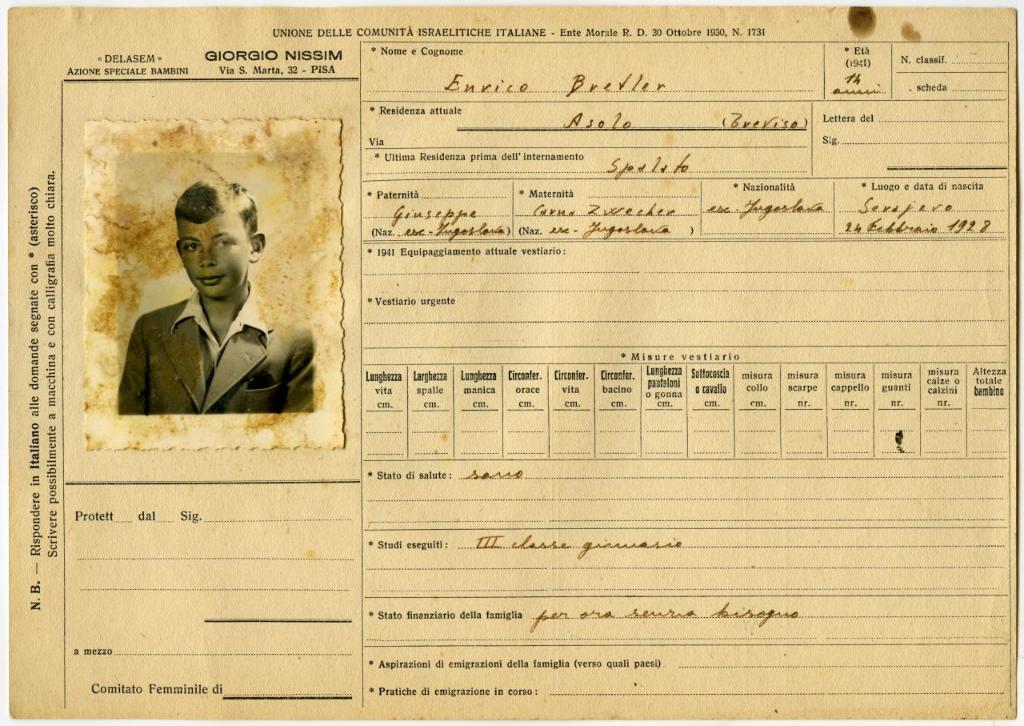 UNIONE DELLE COMUNITÀ ISRAELITICHE ITALIANE - Ente Morale R. D. 30 Ottobre 1930, N. 1731
« DELASEM »
AZIONE SPECIALE BAMBINI
GIORGIO NISSIM
Via S. Marta, 32 - PISA
* Nome e Cognome
Enrico Bretler
* Età
(1941)
14
anni
N. classif.
scheda
* Residenza attuale
Asolo (Treviso)
Via
Lettera del
Sig.
* Ultima Residenza prima dell'internamento
Spalato
* Paternità
Giuseppe
(Naz. ex-Jugoslava)
* Maternità
Zwecher
(Naz. ex-Jugoslava )
* Nazionalità
ex-Jugoslava
* Luogo e data di nascita
Serajevo
24 Febbraio 1928
* 1941 Equipaggiamento attuale vestiario :
* Vestiario urgente
* Misure vestiario
Lunghezza vita cm.
Larghezza spalle cm.
Lunghezza manica cm.
Circonfer. orace cm.
Circonfer. vita cm.
Circonfer. bacino cm.
Lunghezza pantaloni o gonna cm.
Sottocoscia o cavallo cm.
misura collo cm.
misura scarpe nr.
misura cappello nr.
misura guanti nr.
misura calze o calzini nr.
Altezza totale bambino
* Stato di salute : sano
* Studi eseguiti : III classe ginnasio
* Stato finanziario della famiglia per ora senza bisogno
* Aspirazioni di emigrazioni della famiglia (verso quali paesi)
* Pratiche di emigrazione in corso :
Protett dal Sig.
a mezzo
Comitato Femminile di
N. B. — Rispondere in Italiano alle domande segnate con * (asterisco)
Scrivere possibilmente a macchina e con calligrafia molto chiara.